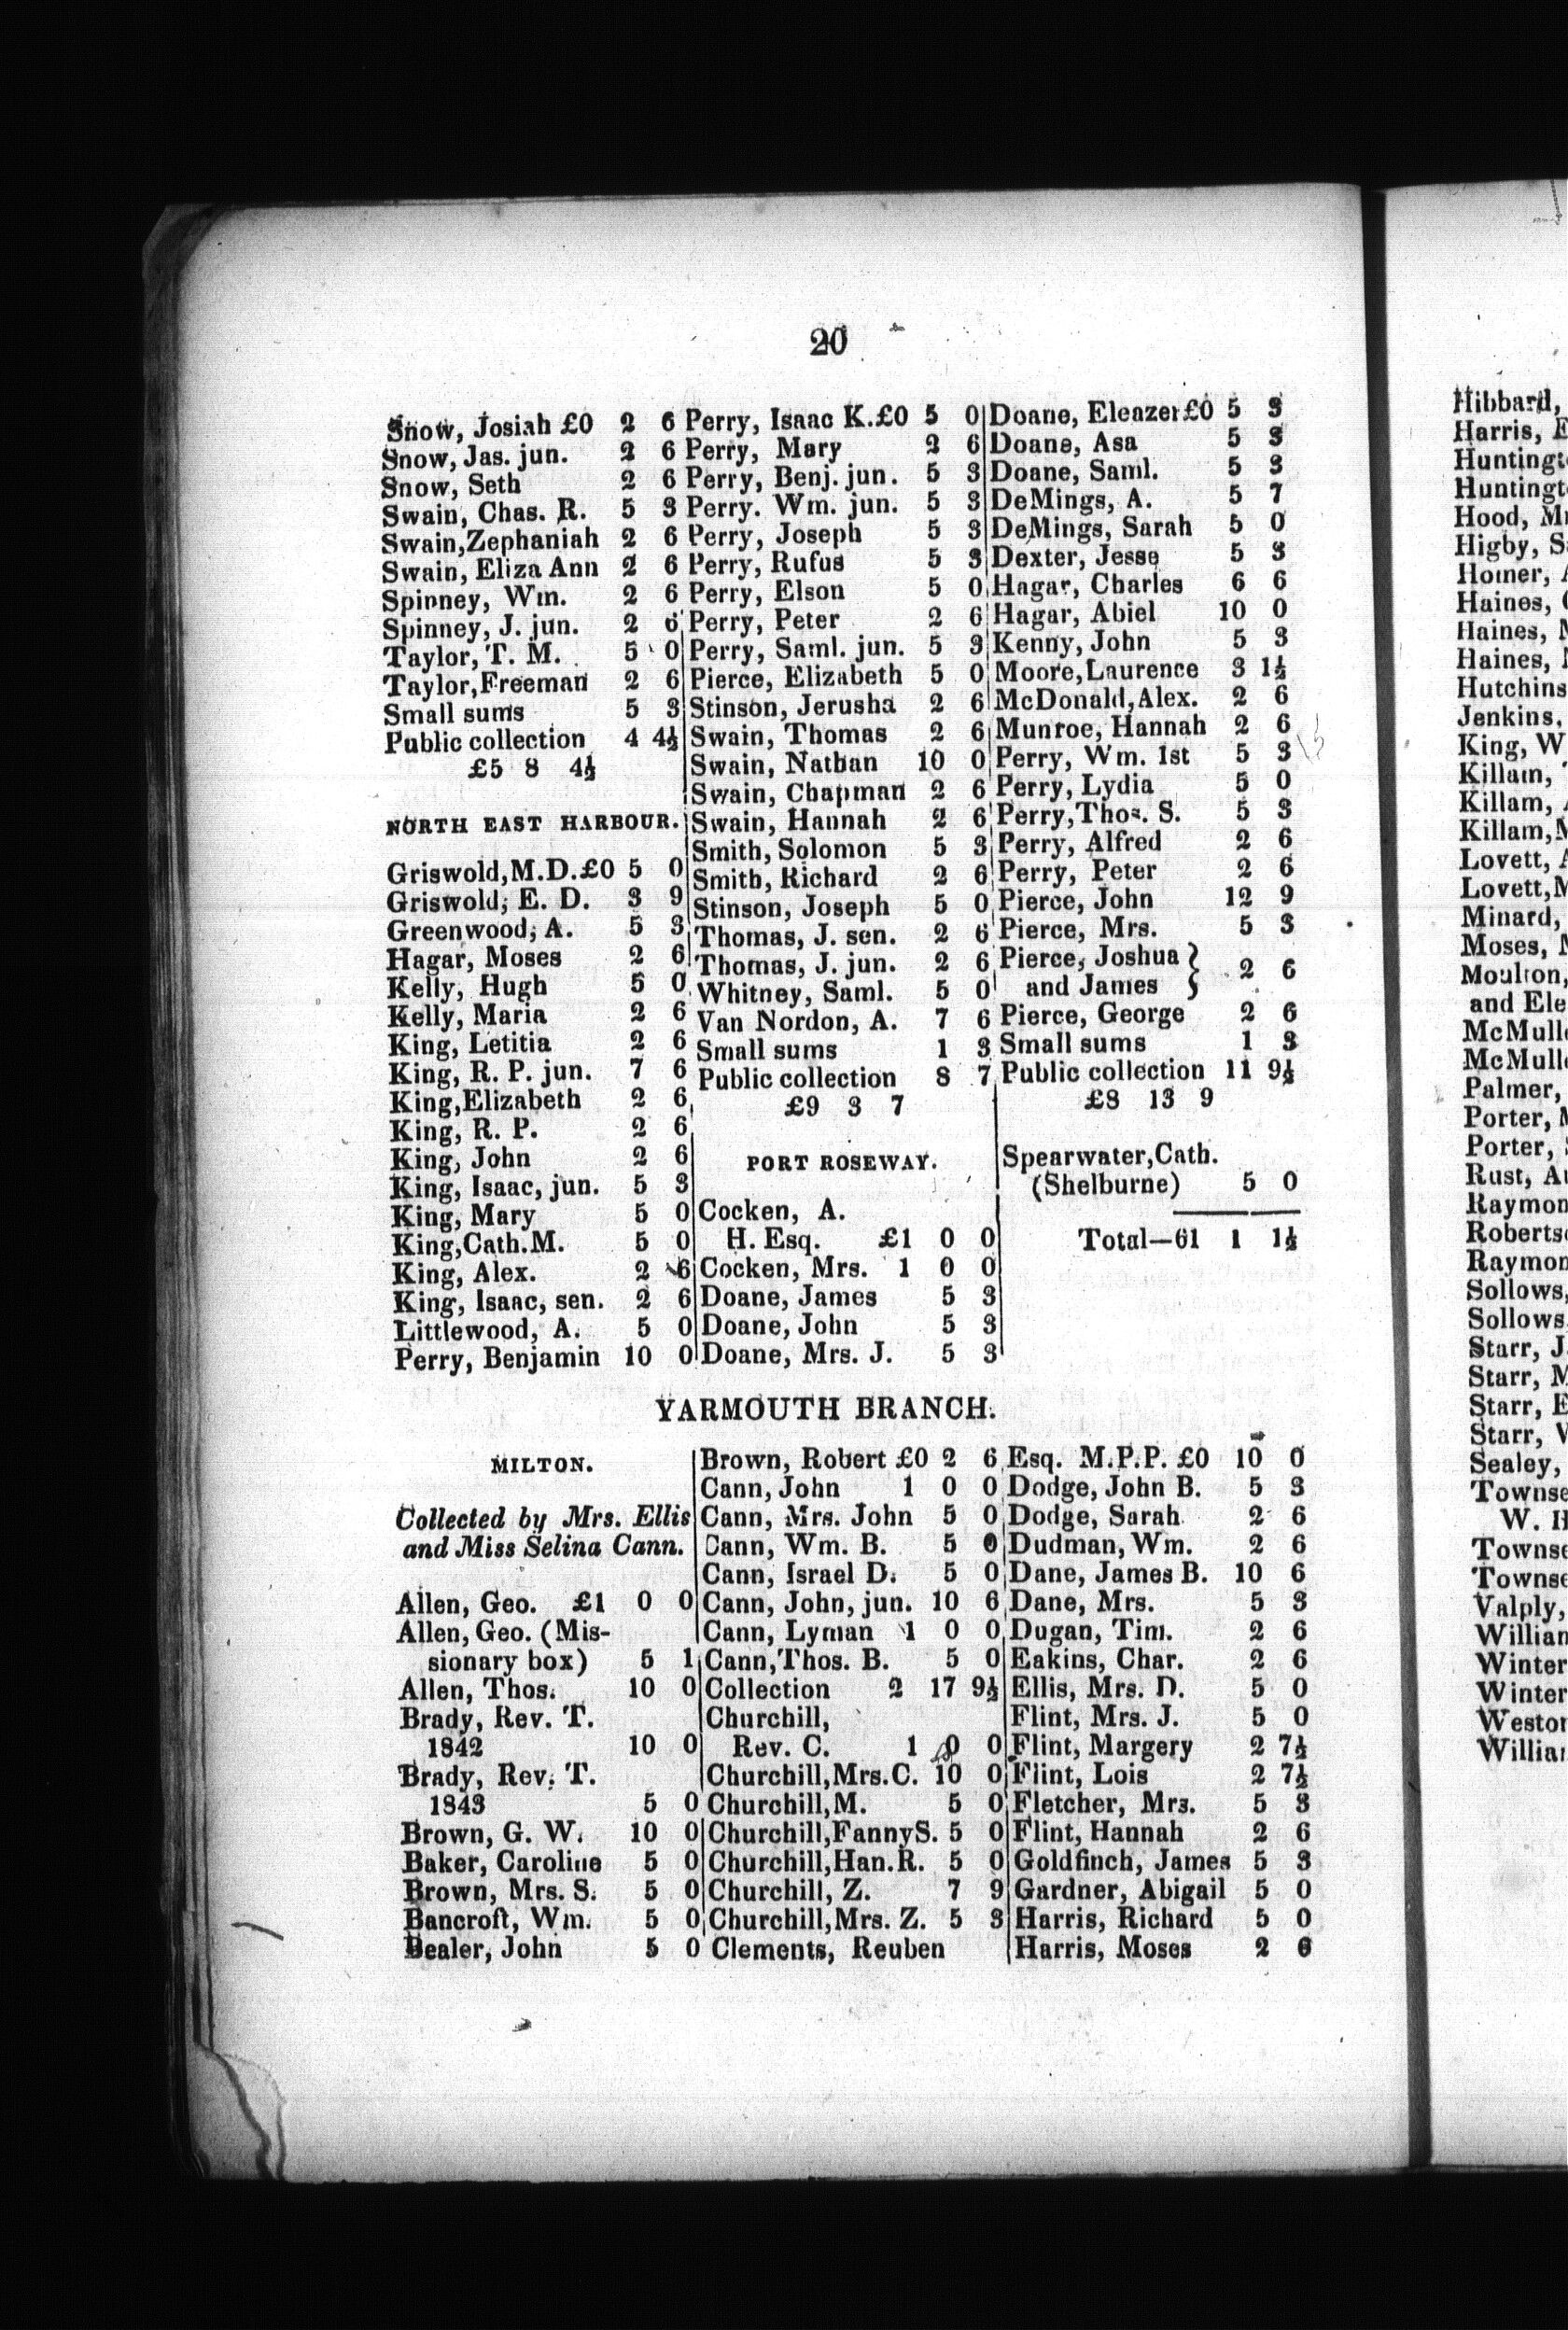 20
Snow, Josiah £0 2 6
Snow, Jas. jun. 2 6
Snow, Seth 2 6
Swain, Chas. R. 5 3
Swain,Zephaniah 2 6
Swain, Eliza Ann 2 6
Spinney, Wm. 2 6
Spinney, J. jun. 2 6
Taylor, T. M. 5 0
Taylor,Freeman 2 6
Small sums 5 3
Public collection 4 4½
£5 8 4½
NORTH EAST HARBOUR.
Griswold,M.D.£0 5 0
Griswold, E. D. 3 9
Greenwood, A. 5 3
Hagar, Moses 2 6
Kelly, Hugh 5 0
Kelly, Maria 2 6
King, Letitia 2 6
King, R. P. jun. 7 6
King,Elizabeth 2 6
King, R. P. 2 6
King, John 2 6
King, Isaac, jun. 5 3
King, Mary 5 0
King,Cath.M. 5 0
King, Alex. 2 6
King, Isaac, sen. 2 6
Littlewood, A. 5 0
Perry, Benjamin 10 0
Perry, Isaac K.£0 5 0
Perry, Mary 2 6
Perry, Benj. jun. 5 3
Perry. Wm. jun. 5 3
Perry, Joseph 5 3
Perry, Rufus 5 3
Perry, Elson 5 0
Perry, Peter 2 6
Perry, Saml. jun. 5 3
Pierce, Elizabeth 5 0
Stinson, Jerusha 2 6
Swain, Thomas 2 6
Swain, Nathan 10 0
Swain, Chapman 2 6
Swain, Hannah 2 6
Smith, Solomon 5 3
Smith, Richard 2 6
Stinson, Joseph 5 0
Thomas, J. sen. 2 6
Thomas, J. jun. 2 6
Whitney, Saml. 5 0
Van Nordon, A. 7 6
Small sums 1 3
Public collection 8 7
£9 3 7
PORT ROSEWAY.
Cocken, A.
H. Esq. £1 0 0
Cocken, Mrs. 1 0 0
Doane, James 5 3
Doane, John 5 3
Doane, Mrs. J. 5 3
Doane, Eleazer£0 5 3
Doane, Asa 5 3
Doane, Saml. 5 3
DeMings, A. 5 7
DeMings, Sarah 5 0
Dexter, Jesse 5 3
Hagar, Charles 6 6
Hagar, Abiel 10 0
Kenny, John 5 3
Moore,Laurence 3 1½
McDonald,Alex. 2 6
Munroe, Hannah 2 6
Perry, Wm. 1st 5 3
Perry, Lydia 5 0
Perry,Thos. S. 5 3
Perry, Alfred 2 6
Perry, Peter 2 6
Pierce, John 12 9
Pierce, Mrs. 5 3
Pierce, Joshua }
and James } 2 6
Pierce, George 2 6
Small sums 1 3
Public collection 11 9½
£8 13 9
Spearwater,Cath.
(Shelburne) 5 0
Total—61 1 1½
YARMOUTH BRANCH.
MILTON.
Collected by Mrs. Ellis
and Miss Selina Cann.
Allen, Geo. £1 0 0
Allen, Geo. (Mis-
sionary box) 5 1
Allen, Thos. 10 0
Brady, Rev. T.
1842 10 0
Brady, Rev. T.
1843 5 0
Brown, G. W. 10 0
Baker, Caroline 5 0
Brown, Mrs. S. 5 0
Bancroft, Wm. 5 0
Bealer, John 5 0
Brown, Robert £0 2 6
Cann, John 1 0 0
Cann, Mrs. John 5 0
Cann, Wm. B. 5 0
Cann, Israel D. 5 0
Cann, John, jun. 10 6
Cann, Lyman 1 0 0
Cann,Thos. B. 5 0
Collection 2 17 9½
Churchill,
Rev. C. 1 0 0
Churchill,Mrs.C. 10 0
Churchill,M. 5 0
Churchill,FannyS. 5 0
Churchill,Han.R. 5 0
Churchill, Z. 7 9
Churchill,Mrs. Z. 5 3
Clements, Reuben
Esq. M.P.P. £0 10 0
Dodge, John B. 5 3
Dodge, Sarah 2 6
Dudman, Wm. 2 6
Dane, James B. 10 6
Dane, Mrs. 5 3
Dugan, Tim. 2 6
Eakins, Char. 2 6
Ellis, Mrs. D. 5 0
Flint, Mrs. J. 5 0
Flint, Margery 2 7½
Flint, Lois 2 7½
Fletcher, Mrs. 5 3
Flint, Hannah 2 6
Goldfinch, James 5 3
Gardner, Abigail 5 0
Harris, Richard 5 0
Harris, Moses 2 6
Hibbard,
Harris, E
Huntingt
Huntingt
Hood, M
Higby, S
Homer, A
Haines,
Haines,
Haines,
Hutchins
Jenkins,
King, W
Killam,
Killam,
Killam,M
Lovett, A
Lovett,M
Minard,
Moses, M
Moulton,
and Ele
McMull
McMull
Palmer,
Porter, M
Porter,
Rust, A
Raymon
Roberts
Raymon
Sollows,
Sollows
Starr, J
Starr, M
Starr, E
Starr, W
Sealey,
Townse
W. H
Townse
Townse
Valply,
William
Winter
Winter
Weston
William